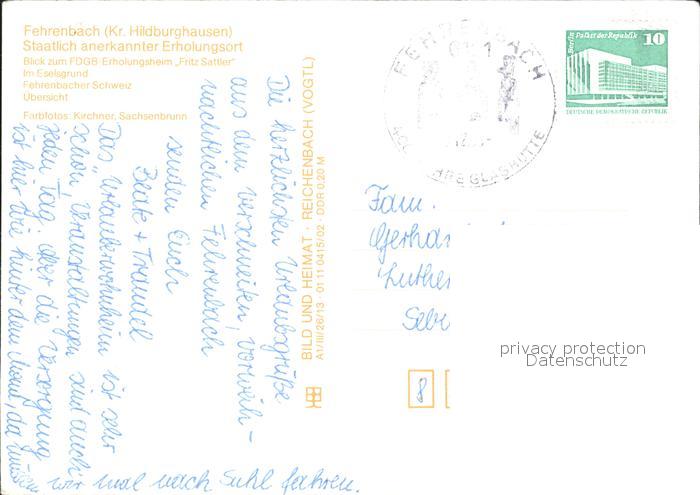 Fehrenbach (Kr. Hildburghausen)
Staatlich anerkannter Erholungsort
Blick zum FDGB-Erholungsheim „Fritz Sattler"
Im Eselsgrund
Fehrenbacher Schweiz
Übersicht
Farbfotos: Kirchner, Sachsenbrunn
Die herzlichsten Urlaubsgrüße
aus dem verschneiten, vorweih-
nachtlichen Fehrenbach
senden Euch
+ Traudel
Das Urlauberwohnheim ist sehr
schön, Veranstaltungen sind auch
jeden Tag, aber die Versorgung
ist hier wie hinter dem Mond, da müssen
wir mal nach Suhl fahren.
BILD UND HEIMAT · REICHENBACH (VOGTL)
A1/III/26/13 · 01 11 0415/02 · DDR 0,20 M
FEHRENBACH
GLASHÜTTE
Berlin Palast der Republik
10
DEUTSCHE DEMOKRATISCHE REPUBLIK
Fam.
Gerhar
Luther
Sebr
8
privacy protection
Datenschutz